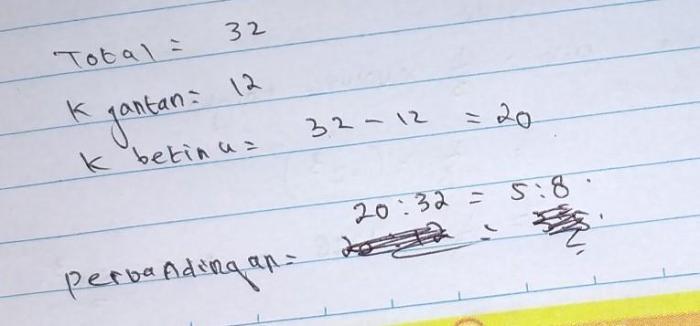 Total = 32
K jantan = 12
K betina = 32 - 12 = 20
20 : 32 = 5 : 8.
Perbandingan =